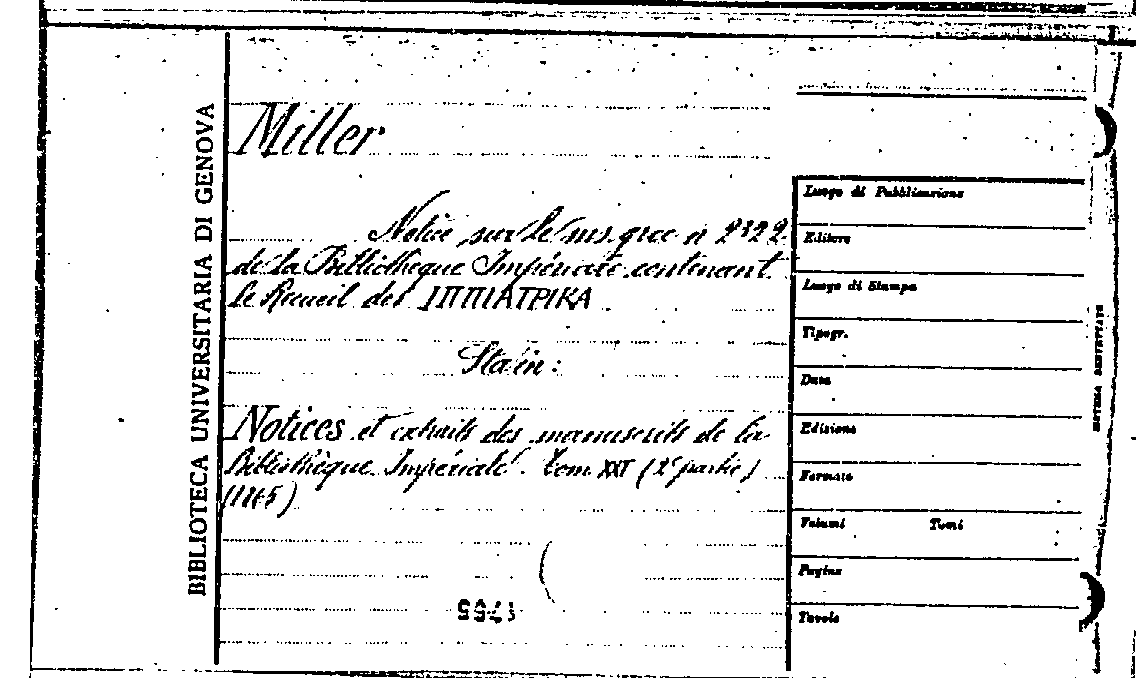 BIBLIOTECA UNIVERSITARIA DI GENOVA
Miller
Notice sur le ms. grec n 2322
de la Bibliothèque Impériale contenant
le Recueil des ΙΠΠΙΑΤΡΙΚΑ
Sta in:
Notices et extraits des manuscrits de la
Bibliothèque Impériale. tom XXI (2e partie)
(1865)
Luogo di Pubblicazione
Editore
Luogo di Stampa
Tipogr.
Data
Edizione
Formato
Volumi Tomi
Pagine
Tavole
SISTEMA BREVETTATO